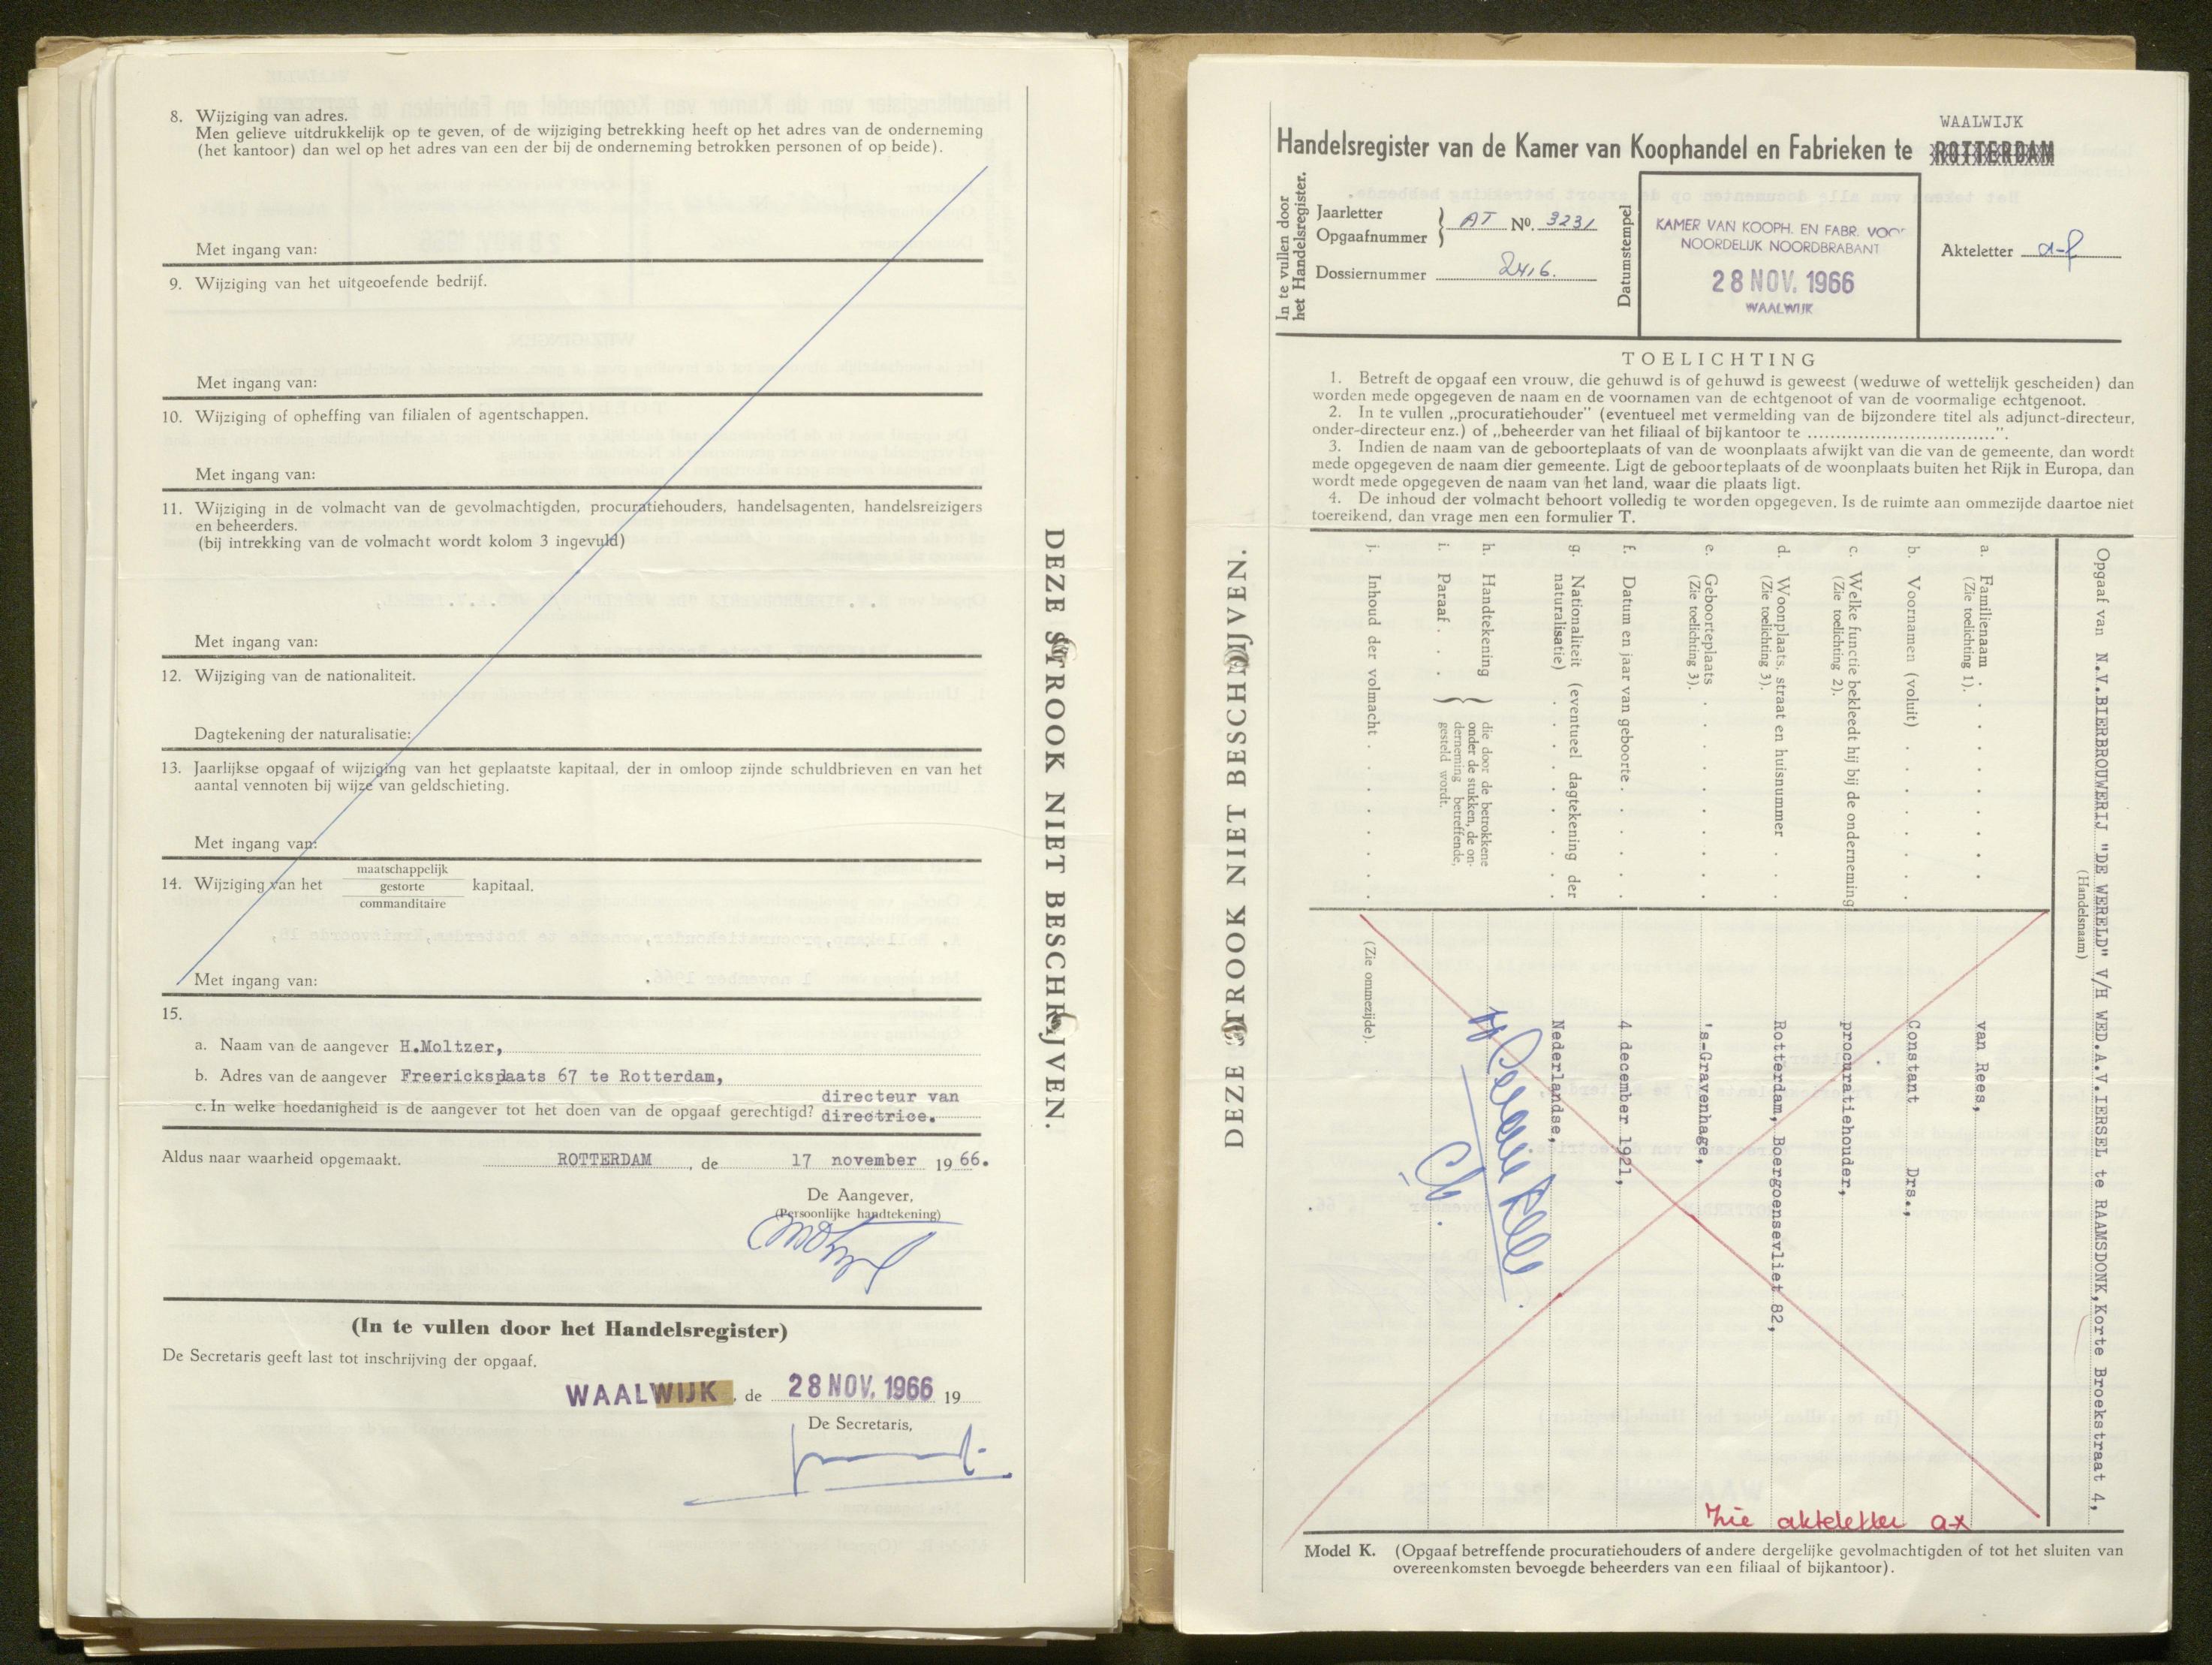 8. Wijziging van adres.
Men gelieve uitdrukkelijk op te geven, of de wijziging betrekking heeft op het adres van de onderneming
(het kantoor) dan wel op het adres van een der bij de onderneming betrokken personen of op beide).
Met ingang van:
9. Wijziging van het uitgeoefende bedrijf.
Met ingang van:
10. Wijziging of opheffing van filialen of agentschappen.
Met ingang van:
11. Wijziging in de volmacht van de gevolmachtigden, procuratiehouders, handelsagenten, handelsreizigers
en beheerders.
(bij intrekking van de volmacht wordt kolom 3 ingevuld)
Met ingang van:
12. Wijziging van de nationaliteit.
Dagtekening der naturalisatie:
13. Jaarlijkse opgaaf of wijziging van het geplaatste kapitaal, der in omloop zijnde schuldbrieven en van het
aantal vennoten bij wijze van geldschieting.
Met ingang van:
14. Wijziging van het maatschappelijk gestorte commanditaire kapitaal.
Met ingang van:
15.
a. Naam van de aangever H.Moltzer,
b. Adres van de aangever Freericksplaats 67 te Rotterdam,
c. In welke hoedanigheid is de aangever tot het doen van de opgaaf gerechtigd? directeur van
directrice.
Aldus naar waarheid opgemaakt. ROTTERDAM , de 17 november 19 66.
De Aangever,
(Persoonlijke handtekening)
(In te vullen door het Handelsregister)
De Secretaris geeft last tot inschrijving der opgaaf.
WAALWIJK , de 28 NOV. 1966 19
De Secretaris,
DEZE STROOK NIET BESCHRIJVEN.
DEZE STROOK NIET BESCHRIJVEN.
WAALWIJK
Handelsregister van de Kamer van Koophandel en Fabrieken te ROTTERDAM
In te vullen door
het Handelsregister.
Jaarletter
Opgaafnummer } AT No. 3231
Dossiernummer 2416.
Datumstempel
KAMER VAN KOOPH. EN FABR. VOOR
NOORDELIJK NOORDBRABANT
28 NOV. 1966
WAALWIJK
Akteletter a-f
TOELICHTING
1. Betreft de opgaaf een vrouw, die gehuwd is of gehuwd is geweest (weduwe of wettelijk gescheiden) dan
worden mede opgegeven de naam en de voornamen van de echtgenoot of van de voormalige echtgenoot.
2. In te vullen „procuratiehouder” (eventueel met vermelding van de bijzondere titel als adjunct-directeur,
onder-directeur enz.) of „beheerder van het filiaal of bijkantoor te ................................”.
3. Indien de naam van de geboorteplaats of van de woonplaats afwijkt van die van de gemeente, dan wordt
mede opgegeven de naam dier gemeente. Ligt de geboorteplaats of de woonplaats buiten het Rijk in Europa, dan
wordt mede opgegeven de naam van het land, waar die plaats ligt.
4. De inhoud der volmacht behoort volledig te worden opgegeven. Is de ruimte aan ommezijde daartoe niet
toereikend, dan vrage men een formulier T.
Opgaaf van N.V.BIERBROUWERIJ "DE WERELD" V/H WED.A.V.IERSEL te RAAMSDONK,Korte Broekstraat 4,
(Handelsnaam)
a. Familienaam . . . . . . . van Rees,
(Zie toelichting 1).
b. Voornamen (voluit) . . . . . Constant Drs.,
c. Welke functie bekleedt hij bij de onderneming procuratiehouder,
(Zie toelichting 2).
d. Woonplaats, straat en huisnummer . . Rotterdam, Boergoensevliet 82,
(Zie toelichting 3).
e. Geboorteplaats . . . . . . . 's-Gravenhage,
(Zie toelichting 3).
f. Datum en jaar van geboorte . . . . 4 december 1921,
g. Nationaliteit (eventueel dagtekening der
naturalisatie) . . . . . . . Nederlandse,
h. Handtekening
i. Paraaf . . . } die door de betrokkene
onder de stukken, de on-
derneming betreffende,
gesteld wordt.
j. Inhoud der volmacht . . . . . . (Zie ommezijde).
Zie akteletter ax
Model K. (Opgaaf betreffende procuratiehouders of andere dergelijke gevolmachtigden of tot het sluiten van
overeenkomsten bevoegde beheerders van een filiaal of bijkantoor).